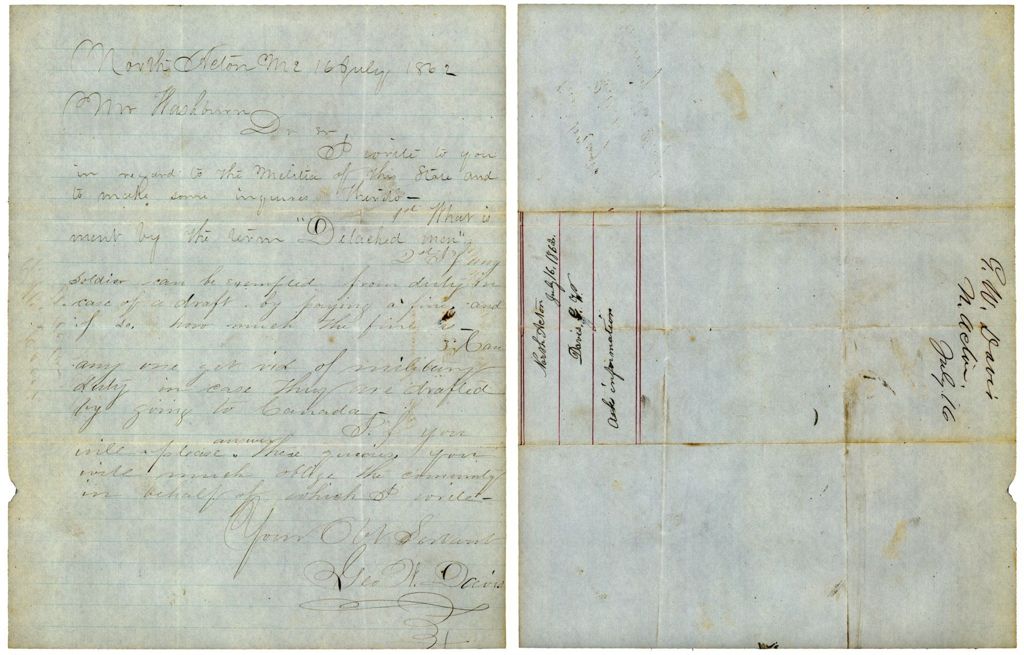 North Acton Me 16 July, 1862
Mr Washburn
Dr sr
I write to you
in regard to the Militia of this State and
to make some inquires thereto —
1st What is
ment by the term "Detached men"
2nd If any
soldier can be exempted from duty in
case of a draft by paying a fine and
if so how much the fine is —
3d Can
any one get rid of military
duty in case they are drafted
by going to Canada —
If you
will please answer these queries you
will much oblige the community
in behalf of which I write —
Your Obt Servant
Geo W. Davis
North Acton
July 16, 1862.
Davis, G. W
Asks information
G. W. Davis
N. Acton,
July 16